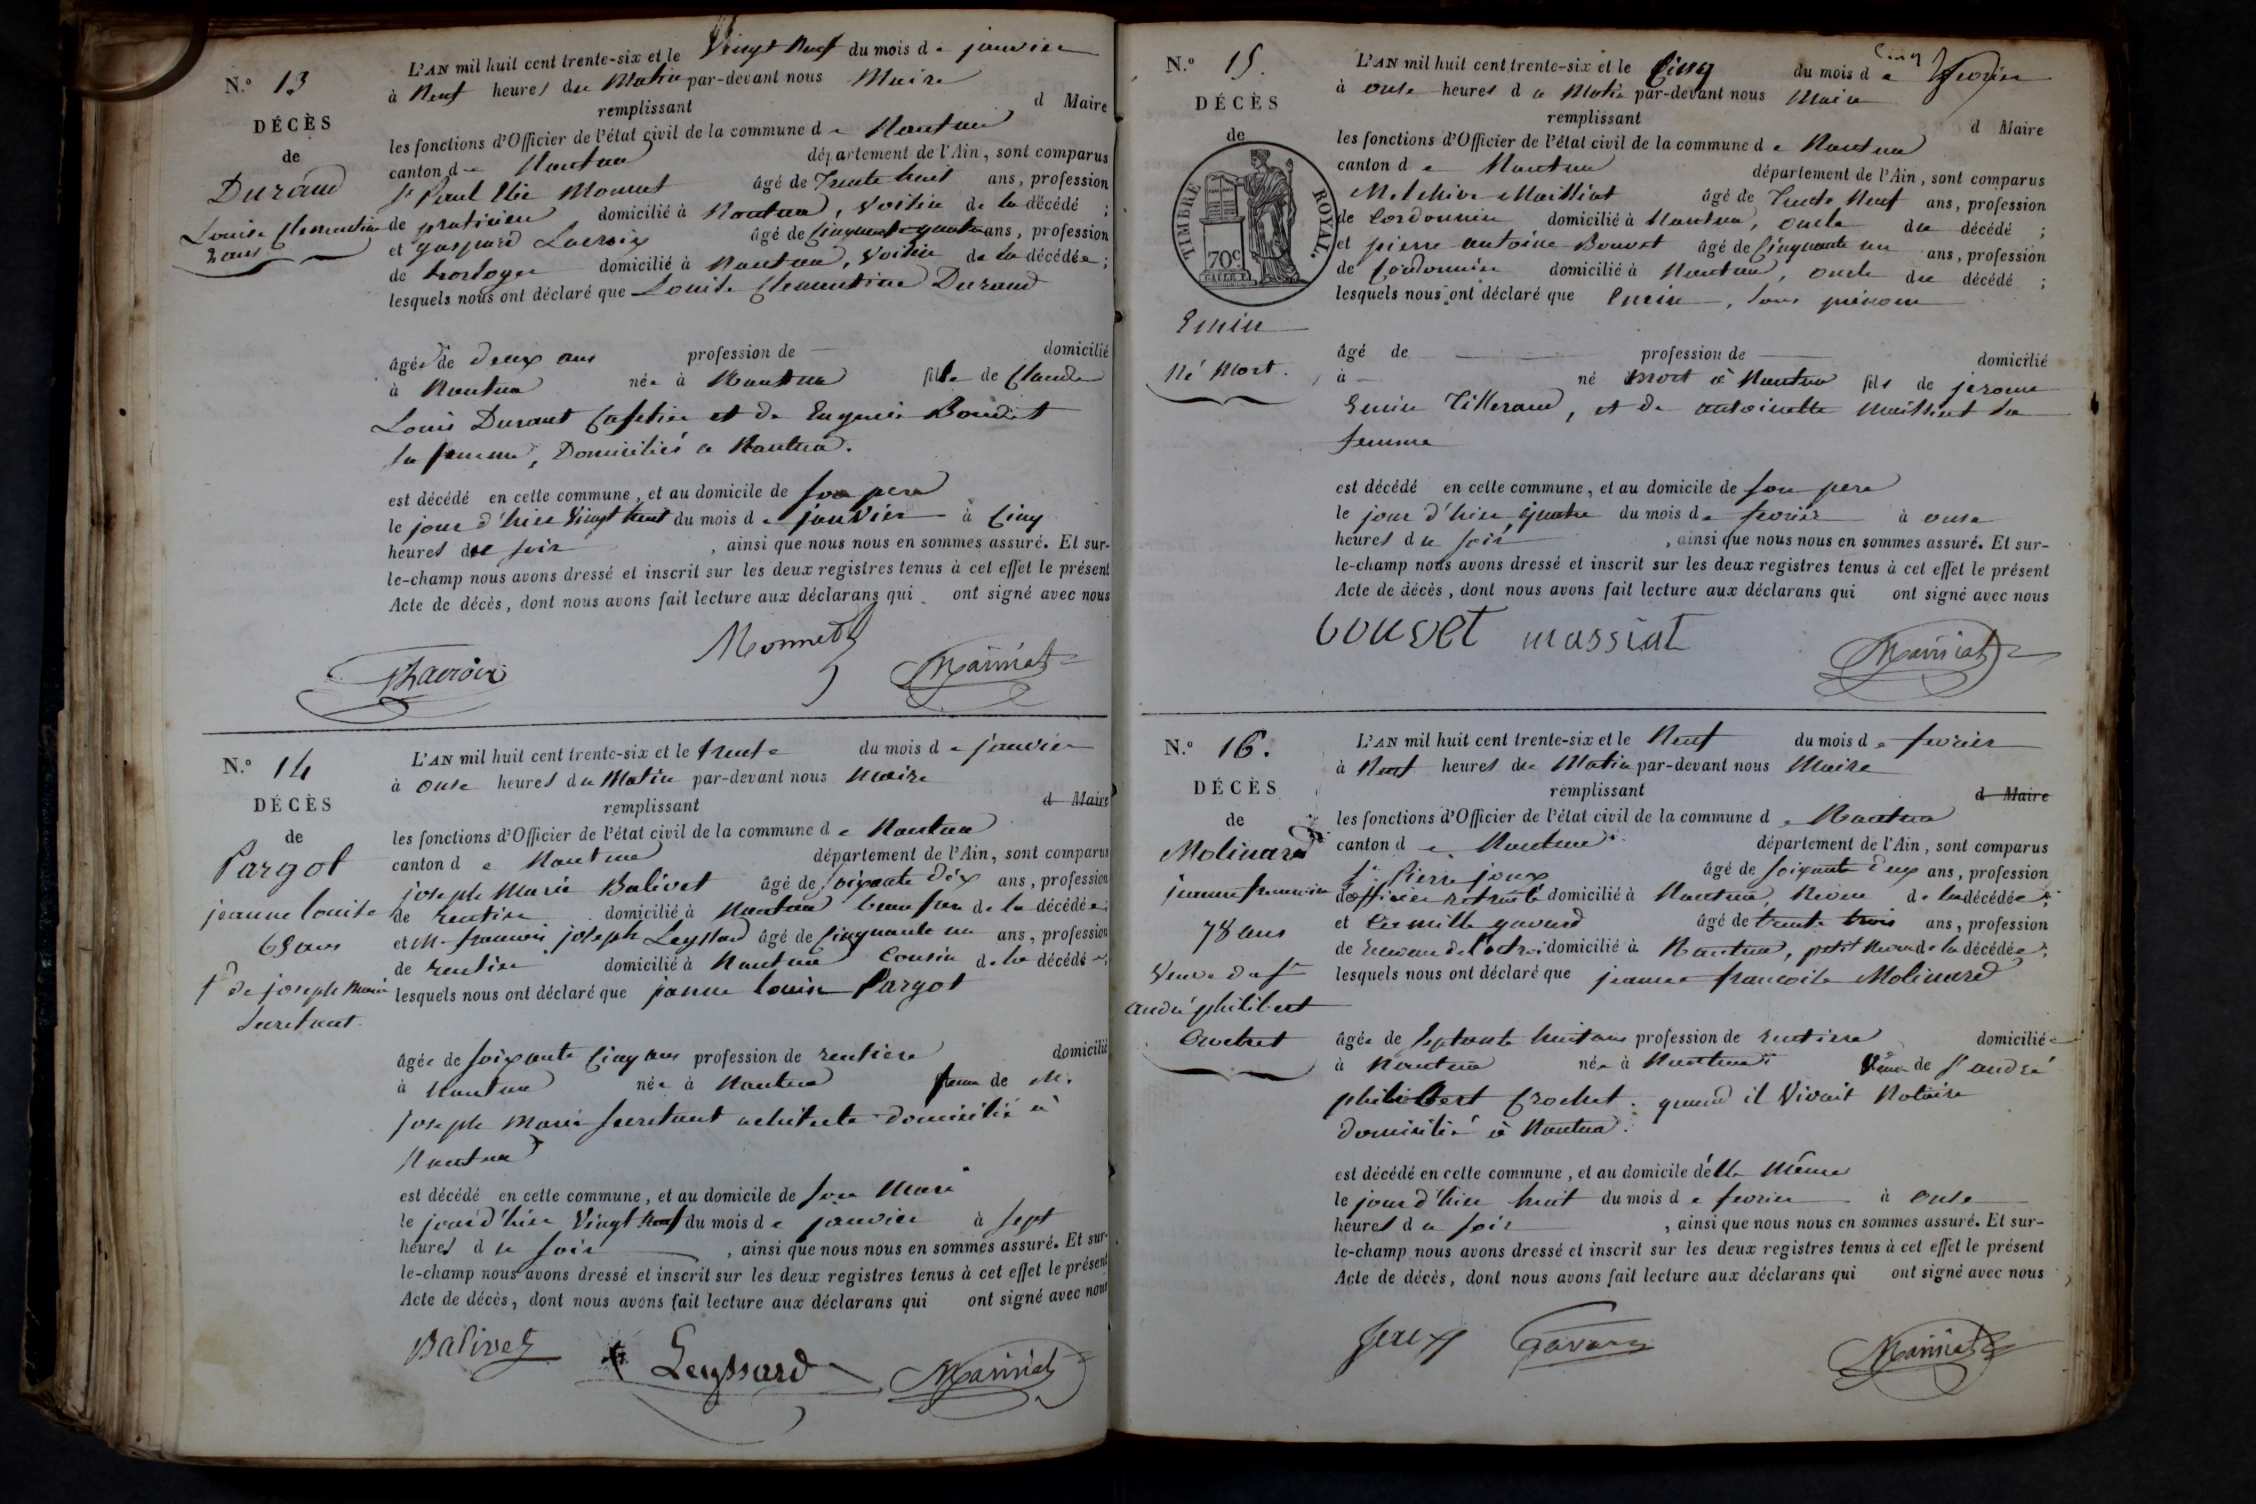 N.o 13
DÉCÈS
de
Durand
Louise Clementine
2 ans
L'AN mil huit cent trente-six et le Vingt Neuf du mois de janvier
à Neuf heures du Matin par-devant nous Maire
remplissant d Maire
les fonctions d'Officier de l'état civil de la commune de Nantua
canton de Nantua département de l'Ain, sont comparus
Sr Paul Monnet âgé de Trente huit ans, profession
de praticien domicilié à Nantua, Voisin de la décédé ;
et gaspard Lacroix âgé de Cinquante quatre ans, profession
de horloger domicilié à Nantua, Voisin de la décédée ;
lesquels nous ont déclaré que Louise Clementine Durand
âgée de deux ans profession de — domicilié
à Nantua née à Nantua fille de Claude
Louis Durant Cafetier et de Eugenie
sa femme, Domiciliés a Nantua.
est décédé en cette commune, et au domicile de son pere
le jour d'hier Vingt huit du mois de janvier à Cinq
heures du soir , ainsi que nous nous en sommes assuré. Et sur-
le-champ nous avons dressé et inscrit sur les deux registres tenus à cet effet le présent
Acte de décès, dont nous avons fait lecture aux déclarans qui ont signé avec nous
Monnet
Lacroix
N.o 14
DÉCÈS
de
Pargot
jeanne louise
65 ans
fe de joseph Marie
Secretant
L'AN mil huit cent trente-six et le trente du mois de janvier
à onse heures du Matin par-devant nous Maire
remplissant d Maire
les fonctions d'Officier de l'état civil de la commune de Nantua
canton de Nantua département de l'Ain, sont comparus
joseph Marie Balivet âgé de soixante dix ans, profession
de rentier domicilié à Nantua beau frere de la décédée ;
et M. francois joseph Leyssard âgé de Cinquante un ans, profession
de rentier domicilié à Nantua Cousin de la décédée ;
lesquels nous ont déclaré que jeanne louise Pargot
âgée de soixante Cinq ans profession de rentiere domicilié
à Nantua née à Nantua femme de M.
joseph Marie Secretant architecte domicilié à
Nantua
est décédé en cette commune, et au domicile de son Mari
le jour d'hier Vingt Neuf du mois de janvier à sept
heures du soir , ainsi que nous nous en sommes assuré. Et sur-
le-champ nous avons dressé et inscrit sur les deux registres tenus à cet effet le présent
Acte de décès, dont nous avons fait lecture aux déclarans qui ont signé avec nous
Balivet
Leyssard
N.o 15.
DÉCÈS
de
TIMBRE ROYAL.
70c
Emin
Né Mort.
L'AN mil huit cent trente-six et le Cinq du mois de Cinq fevrier
à onse heures du Matin par-devant nous Maire
remplissant d Maire
les fonctions d'Officier de l'état civil de la commune de Nantua
canton de Nantua département de l'Ain, sont comparus
Melchior Maissiat âgé de Trente Neuf ans, profession
de Cordonnier domicilié à Nantua, oncle du décédé ;
et pierre antoine Bouvet âgé de Cinquante un ans, profession
de Cordonnier domicilié à Nantua, oncle du décédé ;
lesquels nous ont déclaré que Emin, sans prénom
âgé de — profession de — domicilié
à — né mort à Nantua fils de jerome
Emin Tisserand, et de antoinette Maissiat sa
femme
est décédé en cette commune, et au domicile de son pere
le jour d'hier quatre du mois de fevrier à onse
heures du soir , ainsi que nous nous en sommes assuré. Et sur-
le-champ nous avons dressé et inscrit sur les deux registres tenus à cet effet le présent
Acte de décès, dont nous avons fait lecture aux déclarans qui ont signé avec nous
bouvet massiat
N.o 16.
DÉCÈS
de
Molinard
jeanne francoise
78 ans
Veuve de Sr
andré philibert
Crochet
L'AN mil huit cent trente-six et le Neuf du mois de fevrier
à Neuf heures du Matin par-devant nous Maire
remplissant d Maire
les fonctions d'Officier de l'état civil de la commune de Nantua
canton de Nantua département de l'Ain, sont comparus
Sr Pierre joux âgé de soixante deux ans, profession
d'officier retraité domicilié à Nantua, Neveu de la décédée ;
et Camille gavard âgé de trente trois ans, profession
de Receveur de l'octroi domicilié à Nantua, petit Neveu de la décédée ;
lesquels nous ont déclaré que jeanne francoise Molinard
âgée de septante huit ans profession de rentiere domiciliée
à Nantua née à Nantua Veuve de Sr andré
philibert Crochet quand il Vivait Notaire
domicilié à Nantua.
est décédé en cette commune, et au domicile d'elle Même
le jour d'hier huit du mois de fevrier à onse
heures du soir , ainsi que nous nous en sommes assuré. Et sur-
le-champ nous avons dressé et inscrit sur les deux registres tenus à cet effet le présent
Acte de décès, dont nous avons fait lecture aux déclarans qui ont signé avec nous
joux Gavard